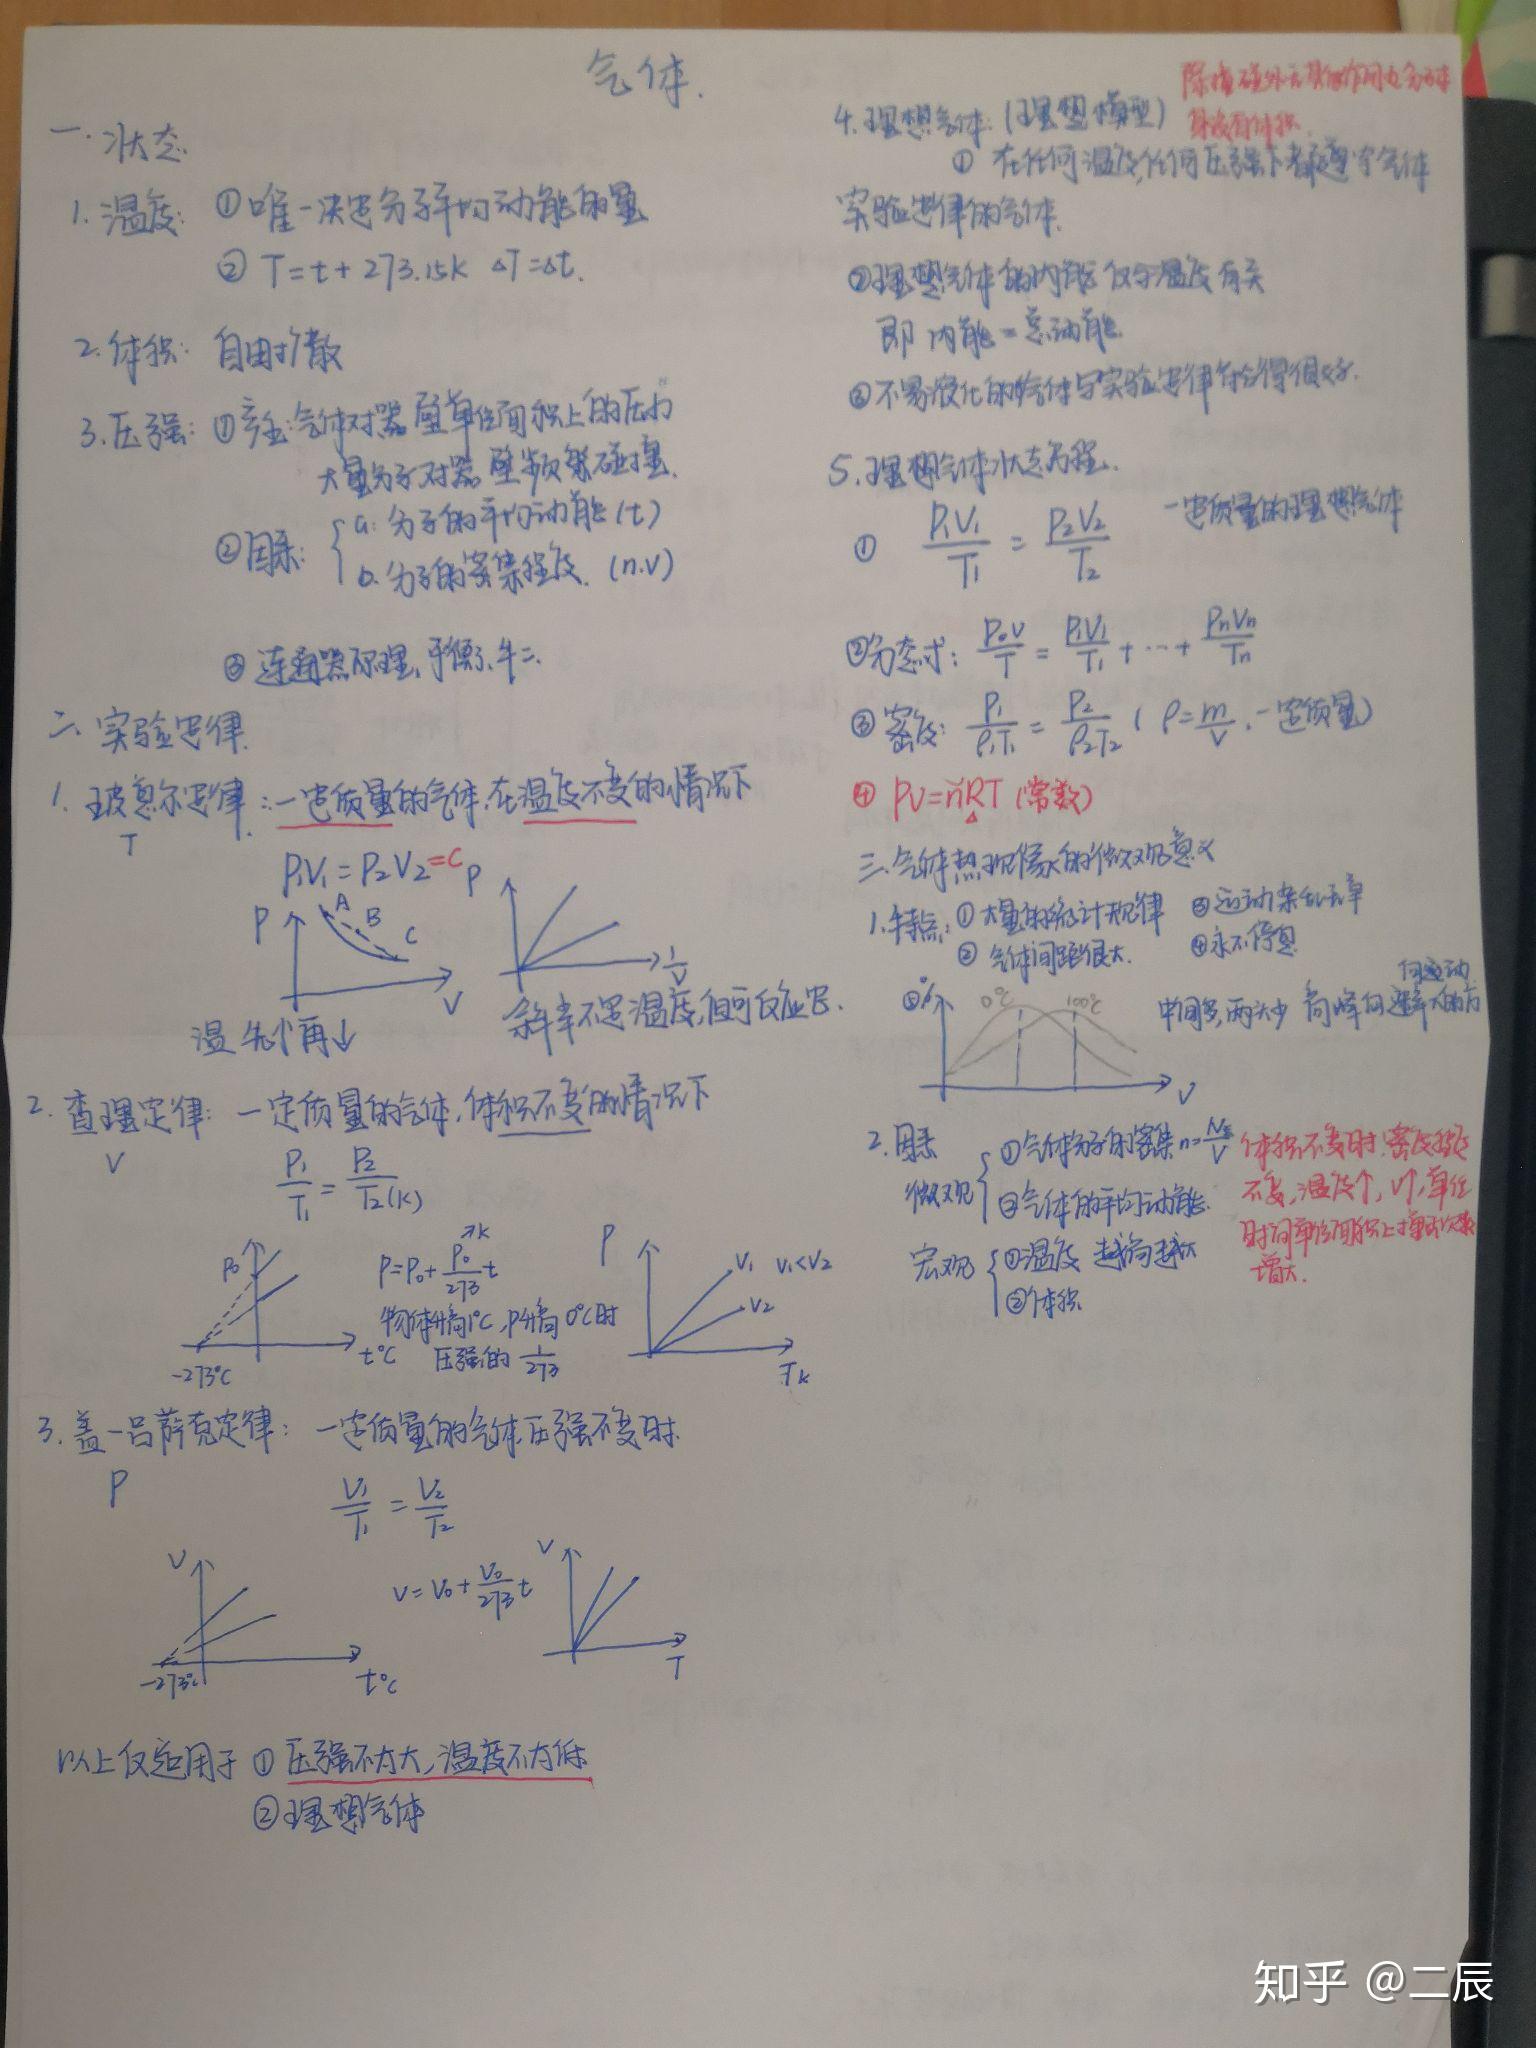 气体.
一.状态
1.温度: ①唯一决定分子平均动能的量
② T=t+273.15K ΔT=Δt.
2.体积: 自由扩散
3.压强: ①产生:气体对器壁单位面积上的压力
大量分子对器壁频繁碰撞.
②因素: a: 分子的平均动能(t)
b. 分子的密集程度. (n.V)
③连通器原理、平衡、牛二.
二.实验定律.
1.玻意尔定律:一定质量的气体,在温度不变的情况下
T
P₁V₁=P₂V₂=C
P A B C V
P 1/V
温先个再↓
斜率不是温度,但可反应它.
2.查理定律: 一定质量的气体,体积不变的情况下
V
P₁/T₁=P₂/T₂(K)
P₀ -273℃ t℃
P=P₀+P₀/273 t
物体升高1℃,P升高0℃时
压强的1/273
P V₁ V₁<V₂ V₂ TK
3.盖一吕萨克定律: 一定质量的气体压强不变时.
P
V₁/T₁=V₂/T₂
V -273℃ t℃
V=V₀+V₀/273 t
V T
以上仅适用于 ①压强不太大,温度不太低
②理想气体
4.理想气体:(理想模型)
除碰撞外无其他作用力分子本
身没有体积.
① 在任何温度,任何压强下都遵守气体
实验定律的气体.
②理想气体的内能仅与温度有关
即内能=总动能.
③不易液化的气体与实验定律符合得很好.
5.理想气体状态方程.
① P₁V₁/T₁=P₂V₂/T₂ 一定质量的理想气体
②分态式: P₀V/T=P₁V₁/T₁+…+PnVn/Tn
③密度: P₁/ρ₁T₁=P₂/ρ₂T₂ (ρ=m/V.一定质量)
④ PV=nRT(常数)
三.气体热现象的微观意义
1.特点: ①大量的统计规律 ③运动杂乱无章
② 气体间距很大. ④永不停息
⑤ 0℃ 100℃ V
中间多,两头少 高峰向速率大的方
向运动
2.因素
微观 ①气体分子的密集n=N总/V
②气体的平均动能.
体积不变时.密度程度
不变,温度个,V个,单位
时间单位面积上撞击次数
增大.
宏观 ①温度 越高越大
②体积
知乎 @二辰